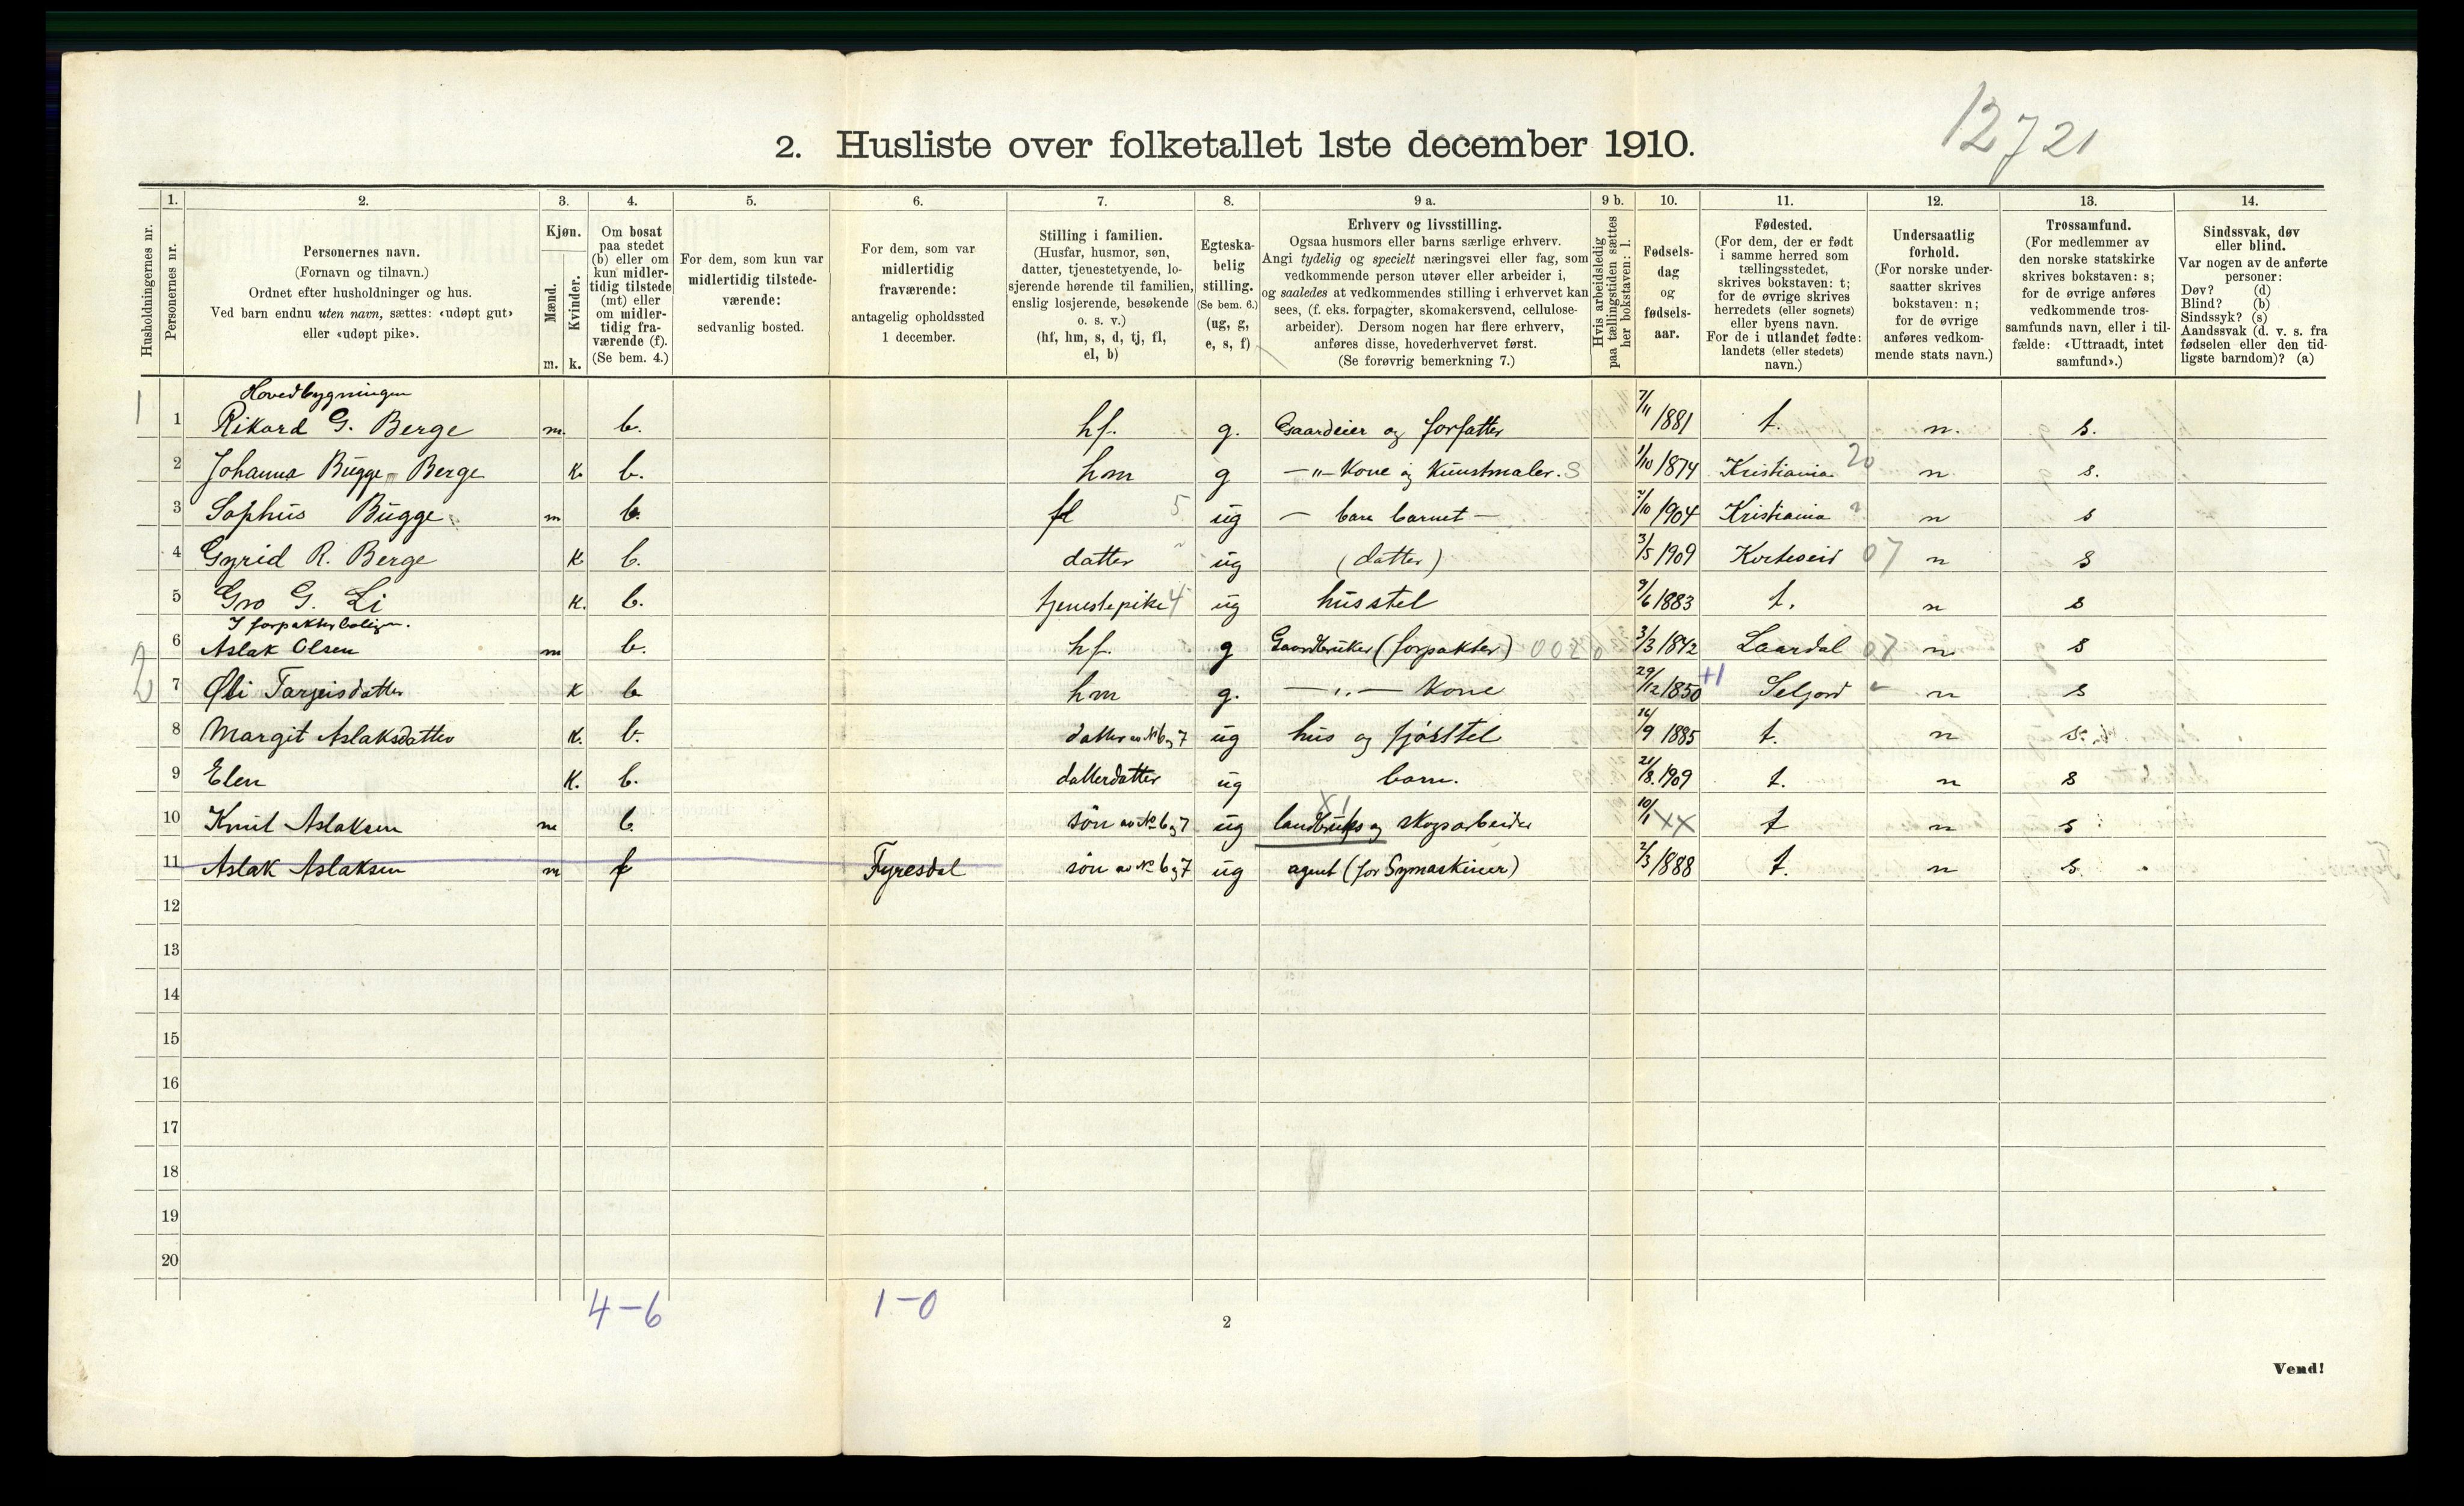 12721
2. Husliste over folketallet 1ste december 1910.
Husholdningernes nr.
1. Personernes nr.
2. Personernes navn. (Fornavn og tilnavn.) Ordnet efter husholdninger og hus. Ved barn endnu uten navn, sættes: «udøpt gut» eller «udøpt pike».
3. Kjøn. Mænd. m. Kvinder. k.
4. Om bosat paa stedet (b) eller om kun midlertidig tilstede (mt) eller om midlertidig fraværende (f). (Se bem. 4.)
5. For dem, som kun var midlertidig tilstedeværende: sedvanlig bosted.
6. For dem, som var midlertidig fraværende: antagelig opholdssted 1 december.
7. Stilling i familien. (Husfar, husmor, søn, datter, tjenestetyende, losjerende hørende til familien, enslig losjerende, besøkende o. s. v.) (hf, hm, s, d, tj, fl, el, b)
8. Egteskabelig stilling. (Se bem. 6.) (ug, g, e, s, f)
9 a. Erhverv og livsstilling. Ogsaa husmors eller barns særlige erhverv. Angi tydelig og specielt næringsvei eller fag, som vedkommende person utøver eller arbeider i, og saaledes at vedkommendes stilling i erhvervet kan sees, (f. eks. forpagter, skomakersvend, cellulosearbeider). Dersom nogen har flere erhverv, anføres disse, hovederhvervet først. (Se forøvrig bemerkning 7.)
9 b. Hvis arbeidsledig paa tællingstiden sættes her bokstaven: l.
10. Fødselsdag og fødselsaar.
11. Fødested. (For dem, der er født i samme herred som tællingsstedet, skrives bokstaven: t; for de øvrige skrives herredets (eller sognets) eller byens navn. For de i utlandet fødte: landets (eller stedets) navn.)
12. Undersaatlig forhold. (For norske undersaatter skrives bokstaven: n; for de øvrige anføres vedkommende stats navn.)
13. Trossamfund. (For medlemmer av den norske statskirke skrives bokstaven: s; for de øvrige anføres vedkommende trossamfunds navn, eller i tilfælde: «Uttraadt, intet samfund».)
14. Sindssvak, døv eller blind. Var nogen av de anførte personer: Døv? (d) Blind? (b) Sindssyk? (s) Aandssvak (d. v. s. fra fødselen eller den tidligste barndom)? (a)
Hovedbygningen
1 1 Rikard G. Berge m. b. hf. g. Gaardeier og forfatter 7/11 1881 t. n. s.
2 Johanna Bugge Berge K. b. hm g -"- Kone og Kunstmaler. S 1/10 1874 Kristiania 20 n s.
3 Sophus Bugge m b. fl 5 ug - bare barnet - /10 1904 Kristiania n s
4 Gyrid R. Berge K b. datter ug (datter) 3/5 1909 Kviteseid 07 n s
5 Gro G. Li K. b. tjenestepike 4 ug husstel 9/6 1883 t. n s
I forpakterboligen.
2 6 Aslak Olsen m b. hf. g Gaardbruker (forpakter) 3/3 1842 Laardal 07 n s
7 Øli Targeisdatter K b hm g. -"- Kone 29/12 1850 +1 Seljord n s
8 Margit Aslaksdatter K. b. datter av No 6 og 7 ug hus og fjøsstel 14/9 1885 t. n s.
9 Elen K. b. datterdatter ug barn. 21/8. 1909 t. n s
10 Knut Aslaksen m b. søn av No 6 og 7 ug landbruks og skogsarbeider 10/1 XX t n s
11 Aslak Aslaksen m f Fyresdal søn av No 6 og 7 ug agent (for Symaskiner) 2/3 1888 t. n s.
12
13
14
15
16
17
18
19
20
4-6 1-0
2
Vend!